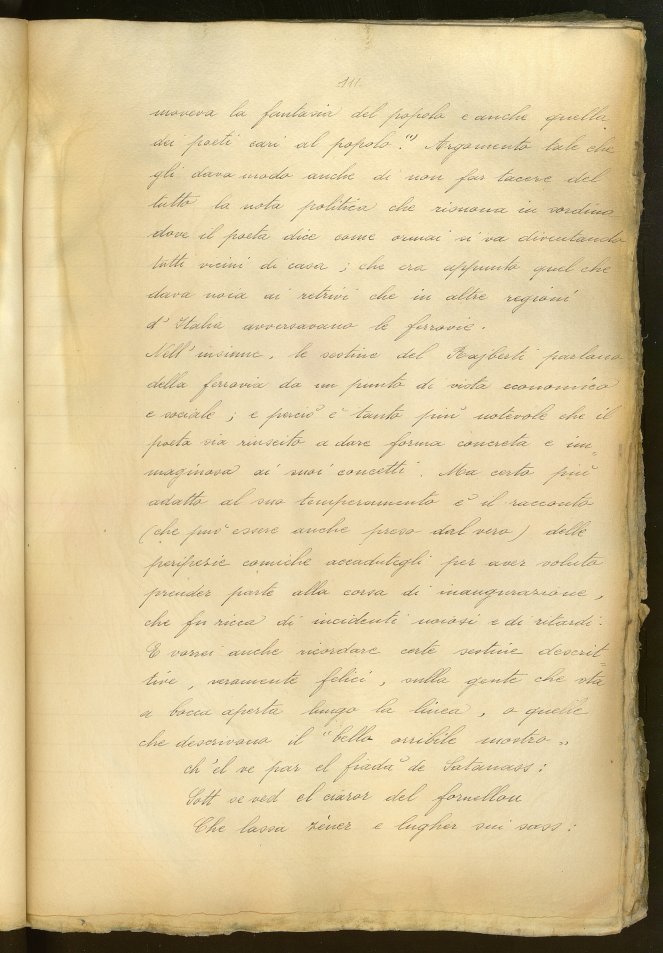 111.
moveva la fantasia del popolo e anche quella
dei poeti cari al popolo." Argomento tale che
gli dava modo anche di non far tacere del
tutto la nota politica che risuona in sordina
dove il poeta dice come ormai si va diventando
tutti vicini di casa; che era appunto quel che
dava noia ai retrivi che in altre regioni
d'Italia avversavano le ferrovie.
Nell'insieme, le sestine del Rajberti parlano
della ferrovia da un punto di vista economico
e sociale; e perciò è tanto più notevole che il
poeta sia riuscito a dare forma concreta e im-
maginosa ai suoi concetti. Ma certo più
adatto al suo temperamento è il racconto
(che può essere anche preso dal vero) delle
peripezie comiche accadutegli per aver voluto
prender parte alla corsa di inaugurazione,
che fu ricca di incidenti noiosi e di ritardi.
E vorrei anche ricordare certe sestine descrit-
tive, veramente felici, sulla gente che sta
a bocca aperta lungo la linea, o quelle
che descrivono il "bello orribile mostro"
ch'el ve par el fradel de Satanass:
Sott se ved el ciaror del fornellon
Che lassa zéner e lugher sui sass: